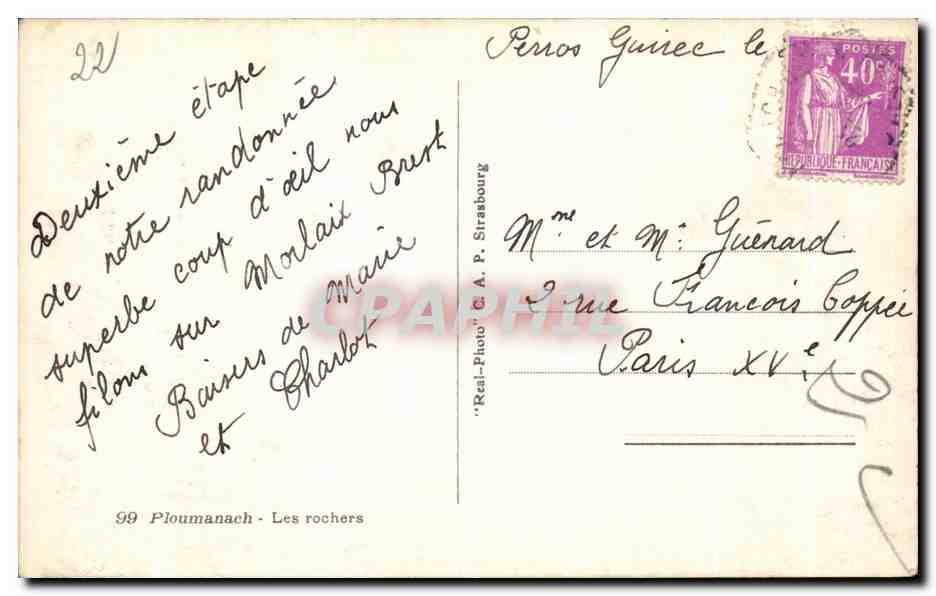 22
Perros Guirec le
POSTES
40c
REPUBLIQUE-FRANCAISE
Deuxième étape
de notre randonnée
superbe coup d'œil nous
filons sur Morlaix Brest
Baisers de Marie
et Charlot
"Real-Photo" C. A. P. Strasbourg
Mme et Mr. Guénard
2 rue François Coppée
Paris XVe.
CPAPHIL
99 Ploumanach - Les rochers